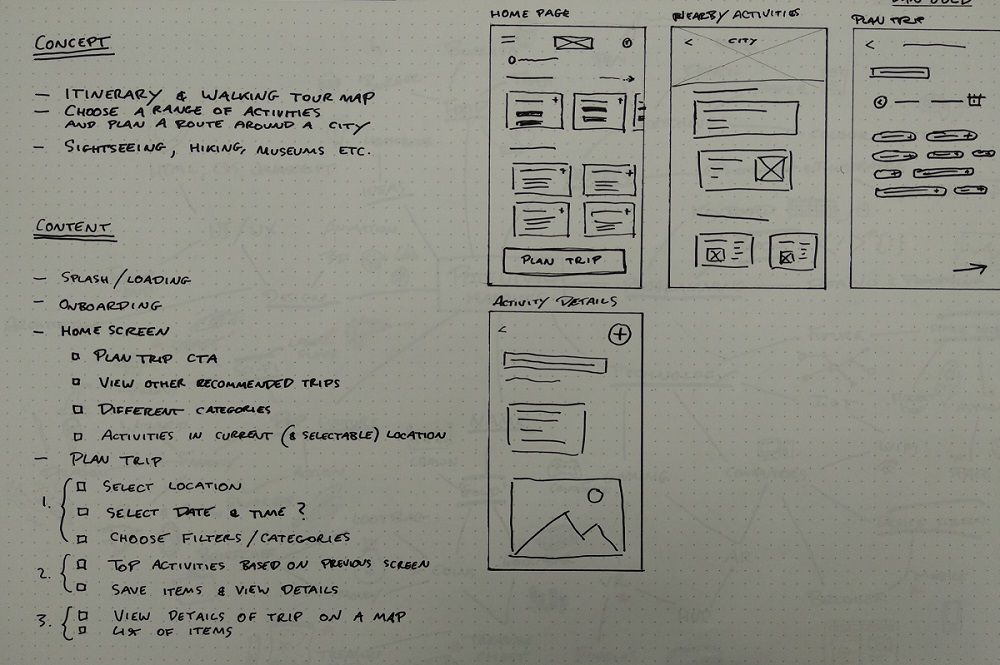 CONCEPT
- ITINERARY & WALKING TOUR MAP
- CHOOSE A RANGE OF ACTIVITIES
AND PLAN A ROUTE AROUND A CITY
- SIGHTSEEING, HIKING, MUSEUMS ETC.
CONTENT
- SPLASH/LOADING
- ONBOARDING
- HOME SCREEN
PLAN TRIP CTA
VIEW OTHER RECOMMENDED TRIPS
DIFFERENT CATEGORIES
ACTIVITIES IN CURRENT (& SELECTABLE) LOCATION
- PLAN TRIP
1. SELECT LOCATION
SELECT DATE & TIME ?
CHOOSE FILTERS/CATEGORIES
2. TOP ACTIVITIES BASED ON PREVIOUS SCREEN
SAVE ITEMS & VIEW DETAILS
3. VIEW DETAILS OF TRIP ON A MAP
LIST OF ITEMS
HOME PAGE
PLAN TRIP
NEARBY ACTIVITIES
CITY
PLAN TRIP
ACTIVITY DETAILS